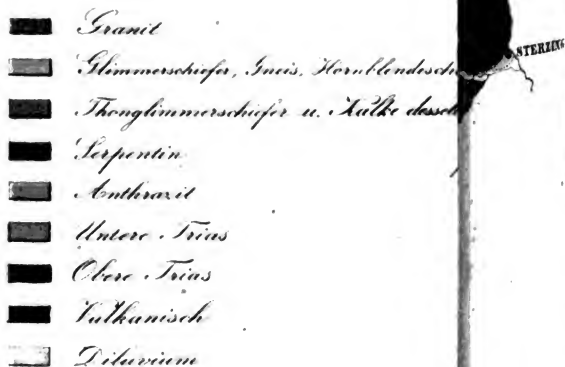 Granit
STERZING
Glimmerschiefer, Gneis, Hornblendesch
Thonglimmerschiefer u. Kalke dessel
Serpentin
Anthrazit
Untere Trias
Obere Trias
Vulkanisch
Diluvium